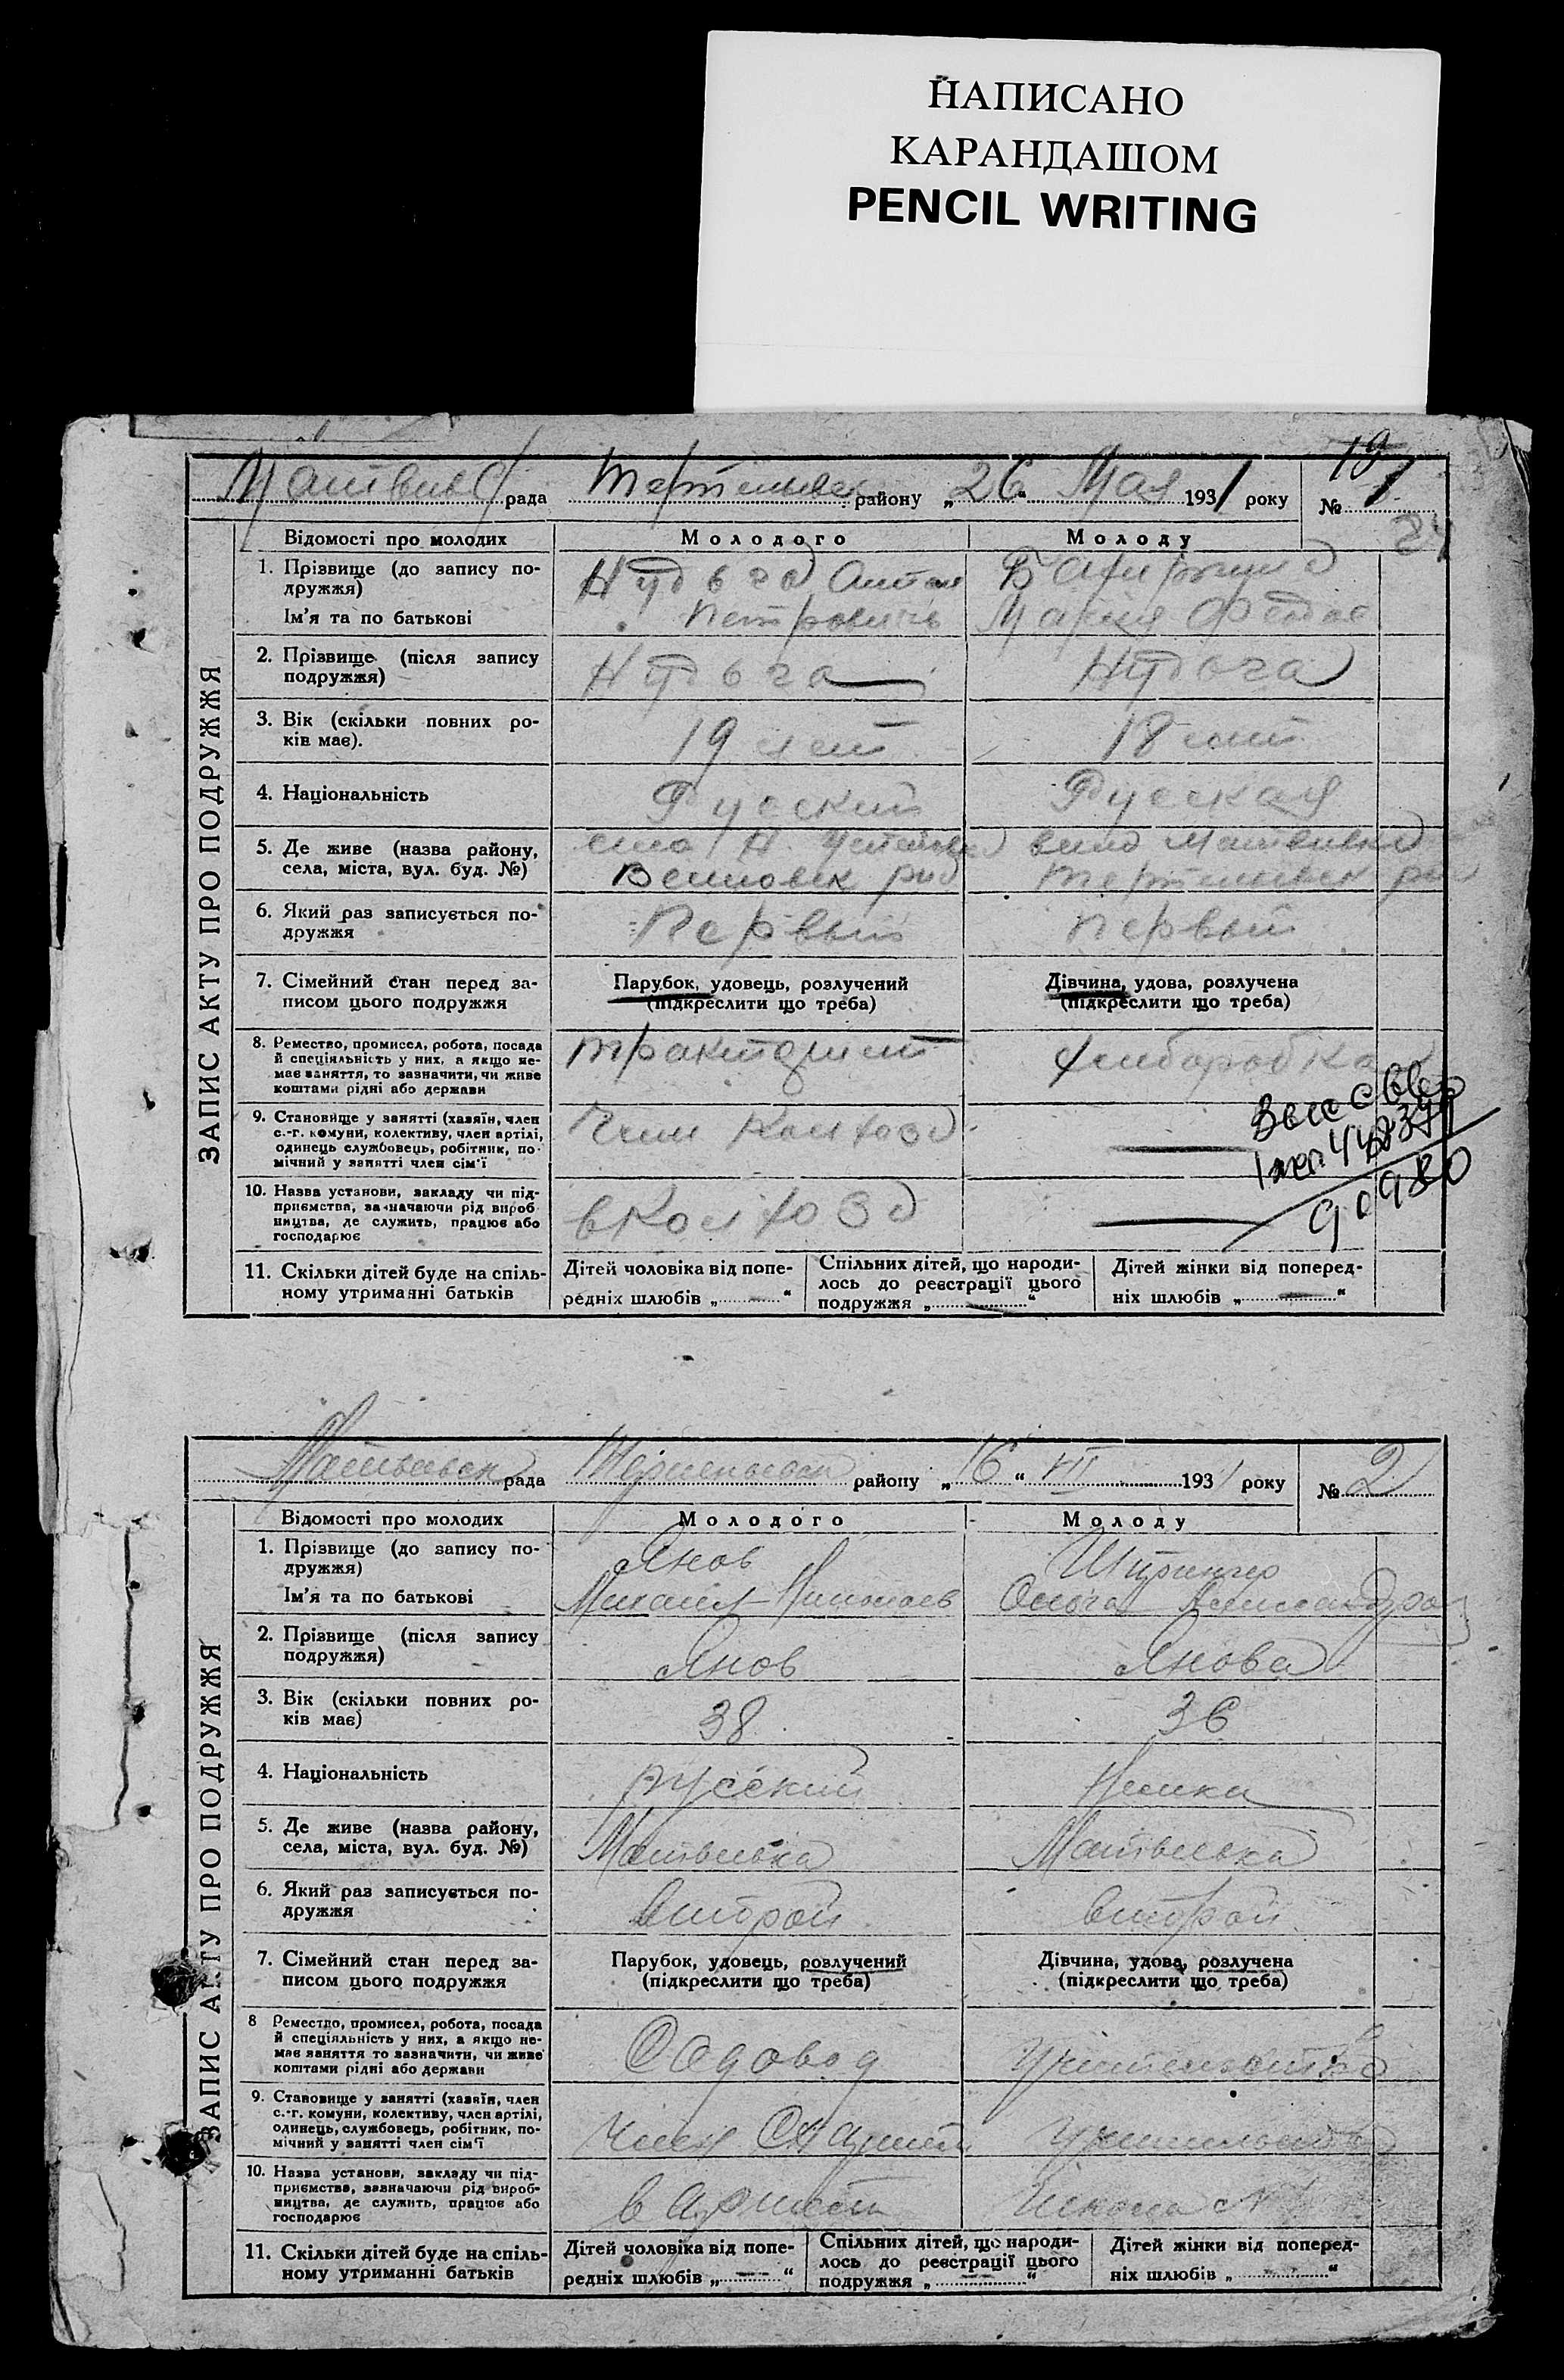 НАПИСАНО
КАРАНДАШОМ
PENCIL WRITING
рада району „26“ Мая 1931 року № 1
24
ЗАПИС АКТУ ПРО ПОДРУЖЖЯ
Відомості про молодих Молодого Молоду
1. Прізвище (до запису по-
дружжя)
Ім'я та по батькові
Нудьга Антон
Петрович
Мария
2. Прізвище (після запису
подружжя)
Нудьга Нудьга
3. Вік (скільки повних ро-
ків має).
19 лет 18 лет
4. Національність
Русский Русская
5. Де живе (назва району,
села, міста, вул. буд. №)
село Н.
6. Який раз записується по-
дружжя
Первый Первый
7. Сімейний стан перед за-
писом цього подружжя
Парубок, удовець, розлучений
(підкреслити що треба)
Дівчина, удова, розлучена
(підкреслити що треба)
8. Ремество, промисел, робота, посада
й спеціяльність у них, а якщо не-
має заняття, то зазначити, чи живе
коштами рідні або держави
тракторист хлиборобка
9. Становище у занятті (хазяїн, член
с.-г. комуни, колективу, член артілі,
одинець службовець, робітник, по-
мічний у занятті член сім'ї
Член Колхозу
10. Назва установи, закладу чи під-
приємства, зазначаючи рід вироб
ництва, де служить, працює або
господарює
в Колхозе
90980
11. Скільки дітей буде на спіль-
ному утриманні батьків
Дітей чоловіка від попе-
редніх шлюбів „ “
Спільних дітей, що народи-
лось до реєстрації цього
подружжя „ “
Дітей жінки від поперед-
ніх шлюбів „ “
рада району „16“ VII 1931 року № 2
ЗАПИС АКТУ ПРО ПОДРУЖЖЯ
Відомості про молодих Молодого Молоду
1. Прізвище (до запису по-
дружжя)
Ім'я та по батькові
Янов
Михаил Николаев
Ольга Александров
2. Прізвище (після запису
подружжя)
Янов Янова
3. Вік (скільки повних ро-
ків має)
38 36
4. Національність
русский Немка
5. Де живе (назва району,
села, міста, вул. буд. №)
Матвеевка Матвеевка
6. Який раз записується по-
дружжя
второй второй
7. Сімейний стан перед за-
писом цього подружжя
Парубок, удовець, розлучений
(підкреслити що треба)
Дівчина, удова, розлучена
(підкреслити що треба)
8 Ремество, промисел, робота, посада
й спеціяльність у них, а якщо не-
має заняття то зазначити, чи живе
коштами рідні або держави
Садовод Учительство
9. Становище у занятті (хазяїн, член
с.-г. комуни, колективу, член артілі,
одинець, службовець, робітник, по-
мічний у занятті член сім'ї
Член СХ Артели
10. Назва установи, закладу чи під-
приємства, зазначаючи рід вироб-
ництва, де служить, працює або
господарює
в Артели Школа
11. Скільки дітей буде на спіль-
ному утриманні батьків
Дітей чоловіка від попе-
редніх шлюбів „ “
Спільних дітей, що народи-
лось до реєстрації цього
подружжя „ “
Дітей жінки від поперед-
ніх шлюбів „ “